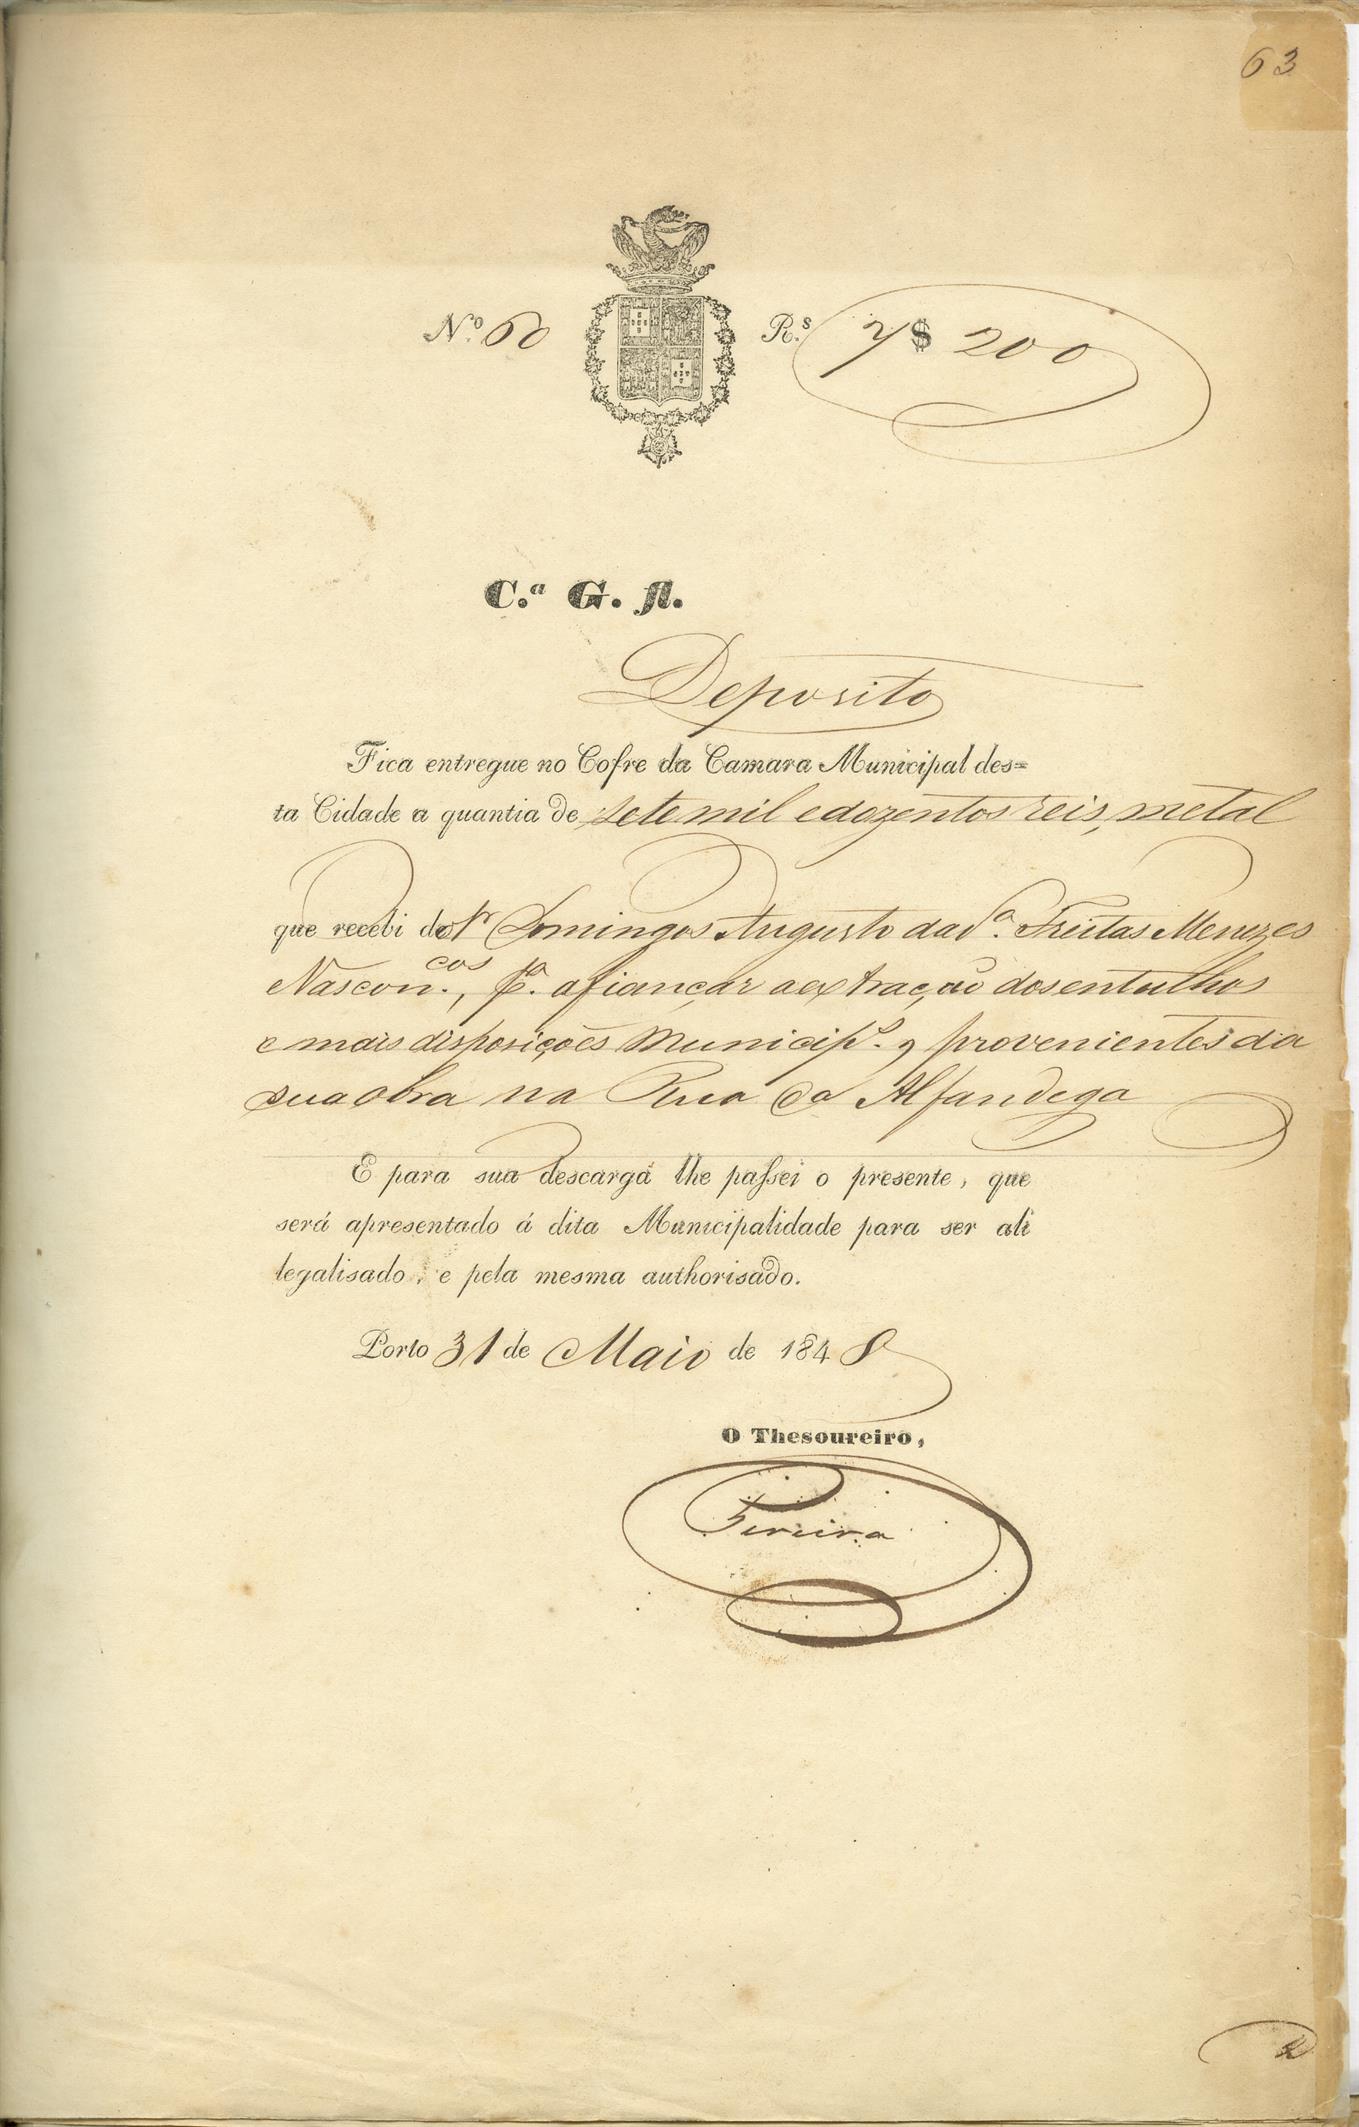 63
N.º 60 R.s 7$200
C.ª G. fl.
Deposito
Fica entregue no Cofre da Camara Municipal des=
ta Cidade a quantia de sete mil e dozentos reis, metal
que recebi do Sr Domingos Augusto da S.ª Freitas Menezes
Vascon.cos, p.ª afiançar a extração dos entulhos
e mais disposições Municip.s provenientes da
sua obra na Rua da Alfandega
E para sua descarga lhe passei o presente, que
será apresentado á dita Municipalidade para ser ali
legalisado, e pela mesma authorisado.
Porto 31 de Maio de 1848
O Thesoureiro,
Pereira